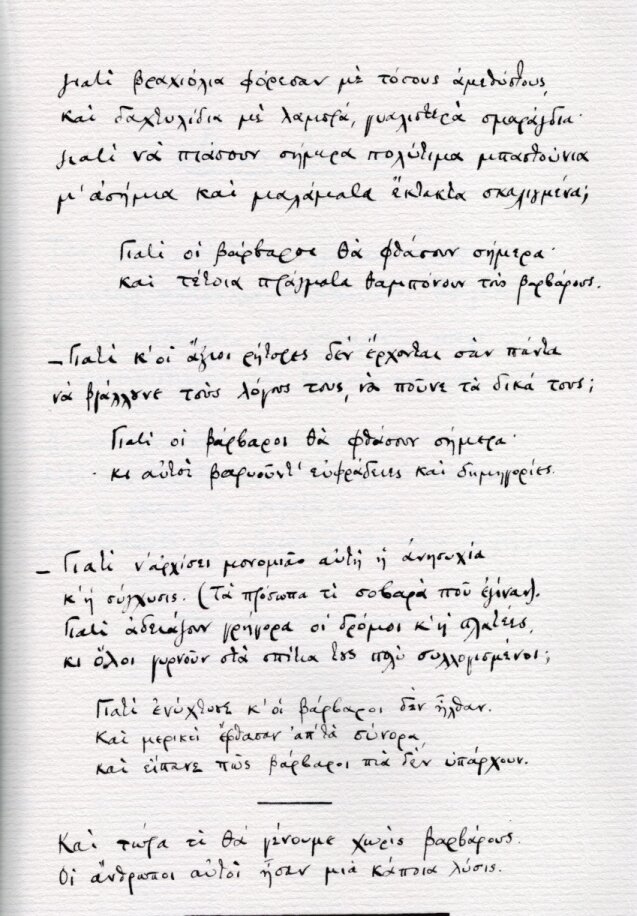 γιατί βραχιόλια φόρεσαν μὲ τόσους ἀμεθύστους,
καὶ δαχτυλίδια μὲ λαμπρά, γυαλιστερὰ σμαράγδια·
γιατί νὰ πιάσουν σήμερα πολύτιμα μπαστούνια
μ' ἀσήμια καὶ μαλάματα ἔκτακτα σκαλιγμένα;
Γιατί οἱ βάρβαροι θὰ φθάσουν σήμερα·
καὶ τέτοια πράγματα θαμπόνουν τοὺς βαρβάρους.
–Γιατί κ' οἱ ἄξιοι ρήτορες δὲν ἔρχονται σὰν πάντα
νὰ βγάλλουνε τοὺς λόγους τους, νὰ ποῦνε τὰ δικά τους;
Γιατί οἱ βάρβαροι θὰ φθάσουν σήμερα·
κι αὐτοὶ βαρυοῦντ' εὐφράδειες καὶ δημηγορίες.
– Γιατί ν' ἀρχίσει μονομιᾶς αὐτὴ ἡ ἀνησυχία
κ' ἡ σύγχυσις. (Τὰ πρόσωπα τί σοβαρὰ ποὺ ἐγίναν).
Γιατί ἀδειάζουν γρήγορα οἱ δρόμοι κ' ἡ πλατέες,
κι ὅλοι γυρνοῦν στὰ σπίτια τους πολὺ συλλογισμένοι;
Γιατί ἐνύχτωσε κ' οἱ βάρβαροι δὲν ἦλθαν.
Καὶ μερικοὶ ἔφθασαν ἀπ' τὰ σύνορα,
καὶ εἴπανε πὼς βάρβαροι πιὰ δὲν ὑπάρχουν.
Καὶ τώρα τί θὰ γένουμε χωρὶς βαρβάρους.
Οἱ ἄνθρωποι αὐτοὶ ἦσαν μιὰ κάποια λύσις.